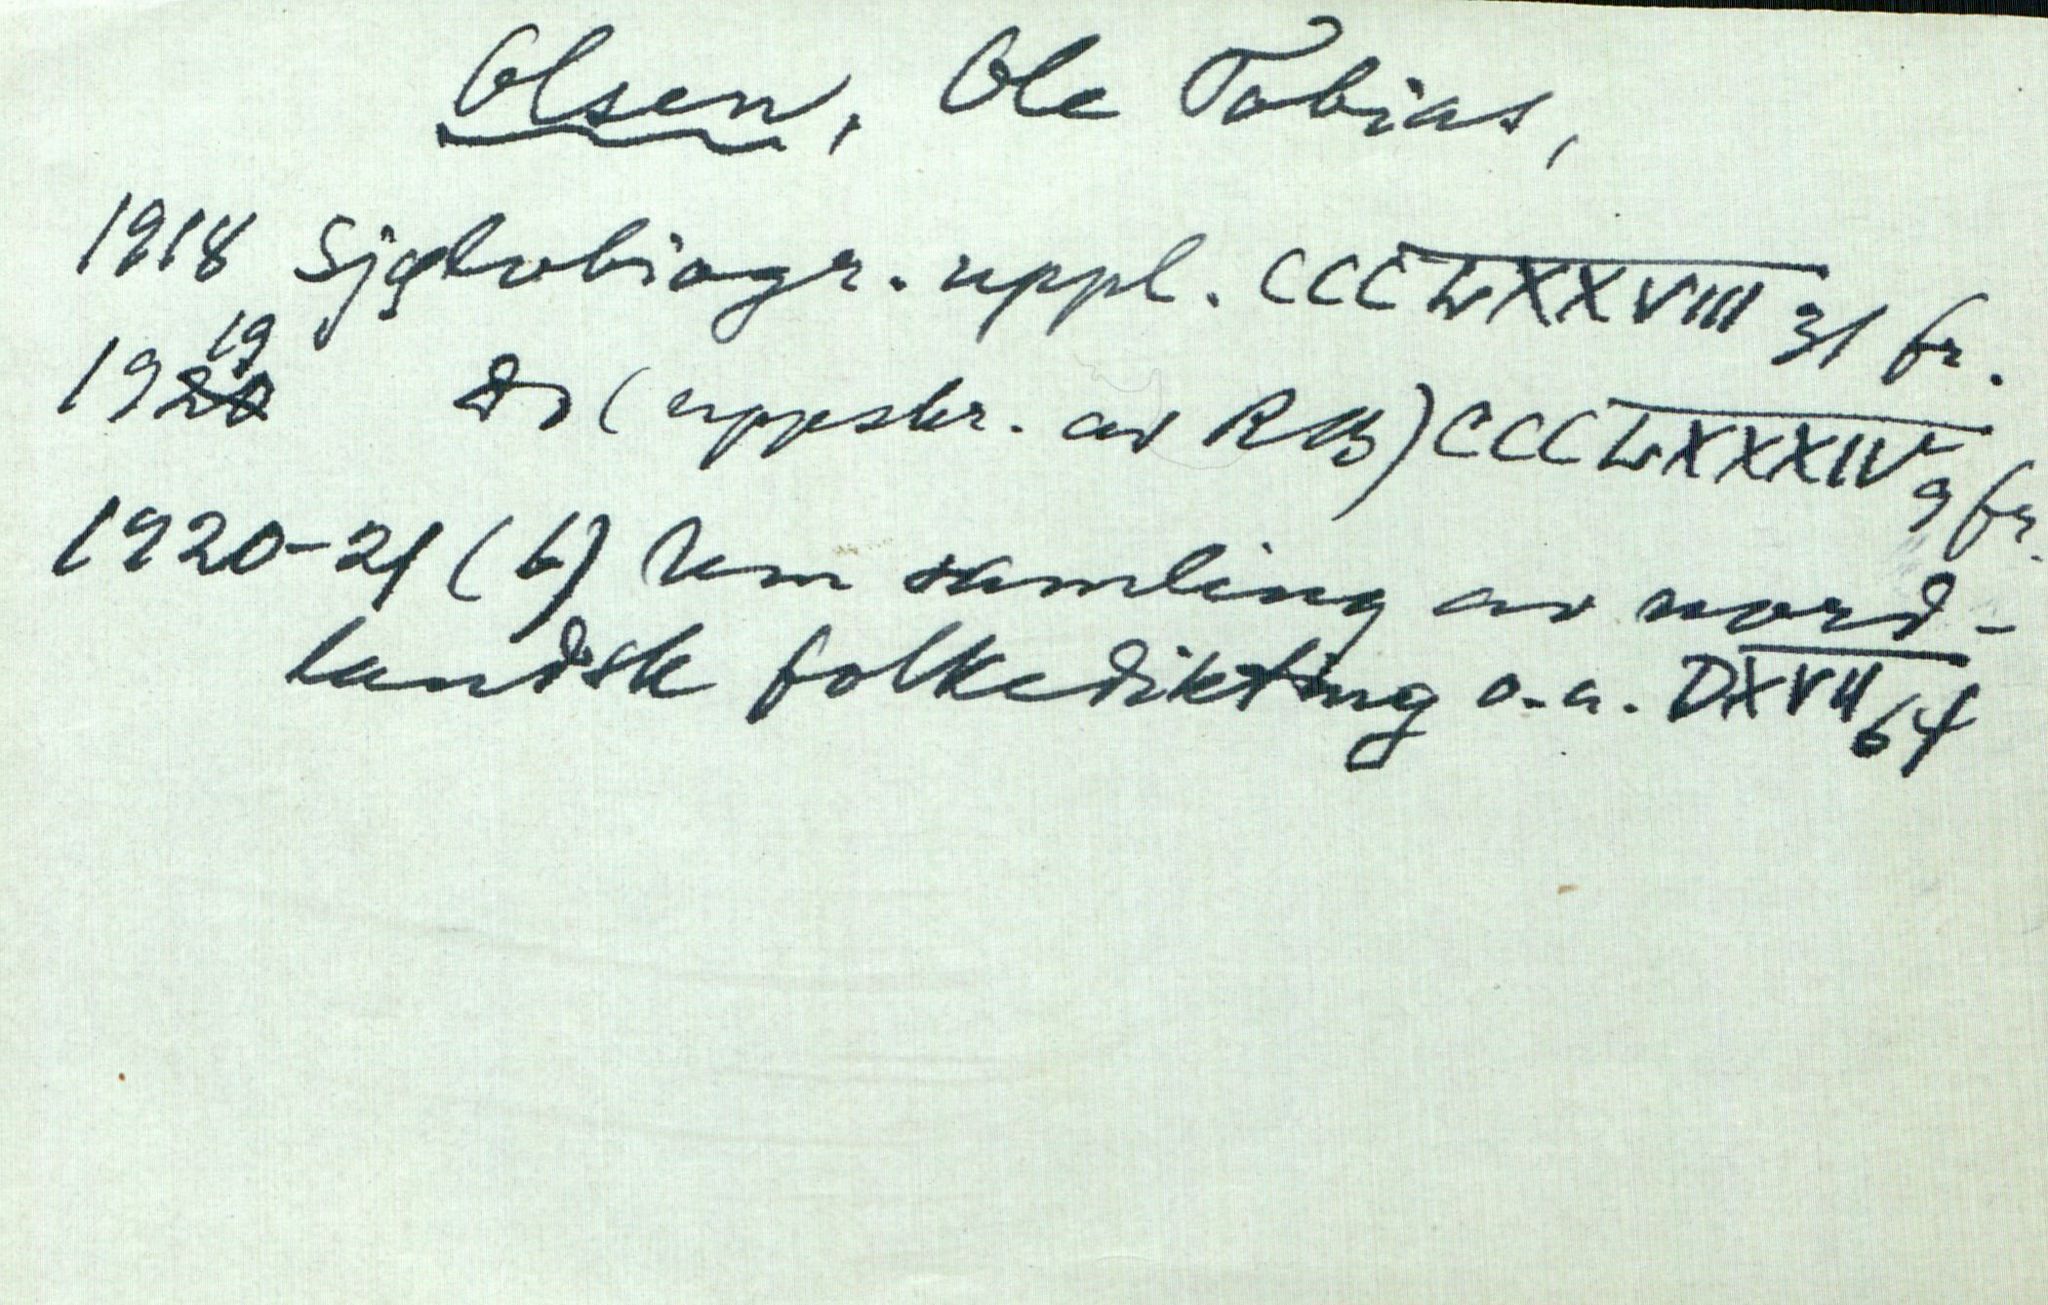 Olsen, Ole Tobias,
1918 Sjølvbiogr. uppl. CCCLXXVIII 31 fr.
19
1920 Do (uppskr. av RB) CCCLXXXIV 9 fr.
1920-21 (6) Um samling av nord-
landsk folkedikting o.a. DXVII 64